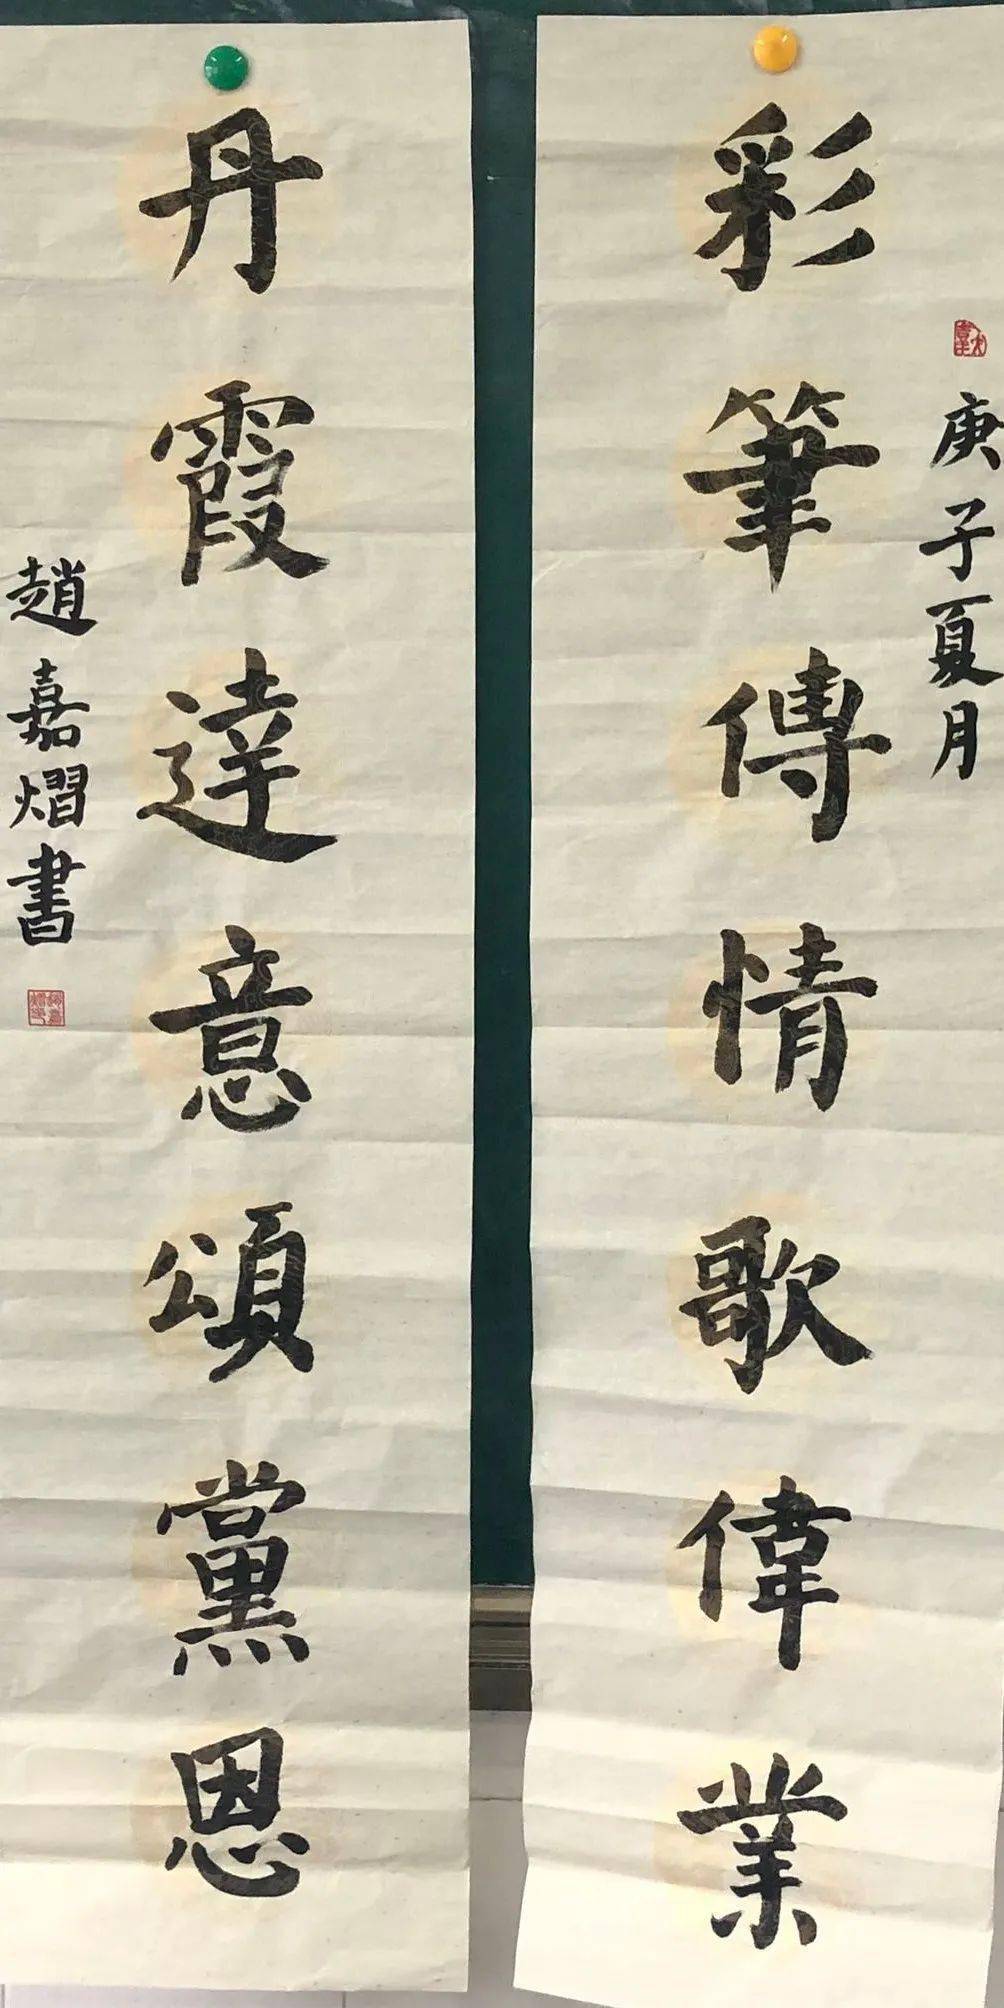 庚子夏月
彩筆傳情歌偉業
丹霞達意頌黨恩
趙嘉熠書